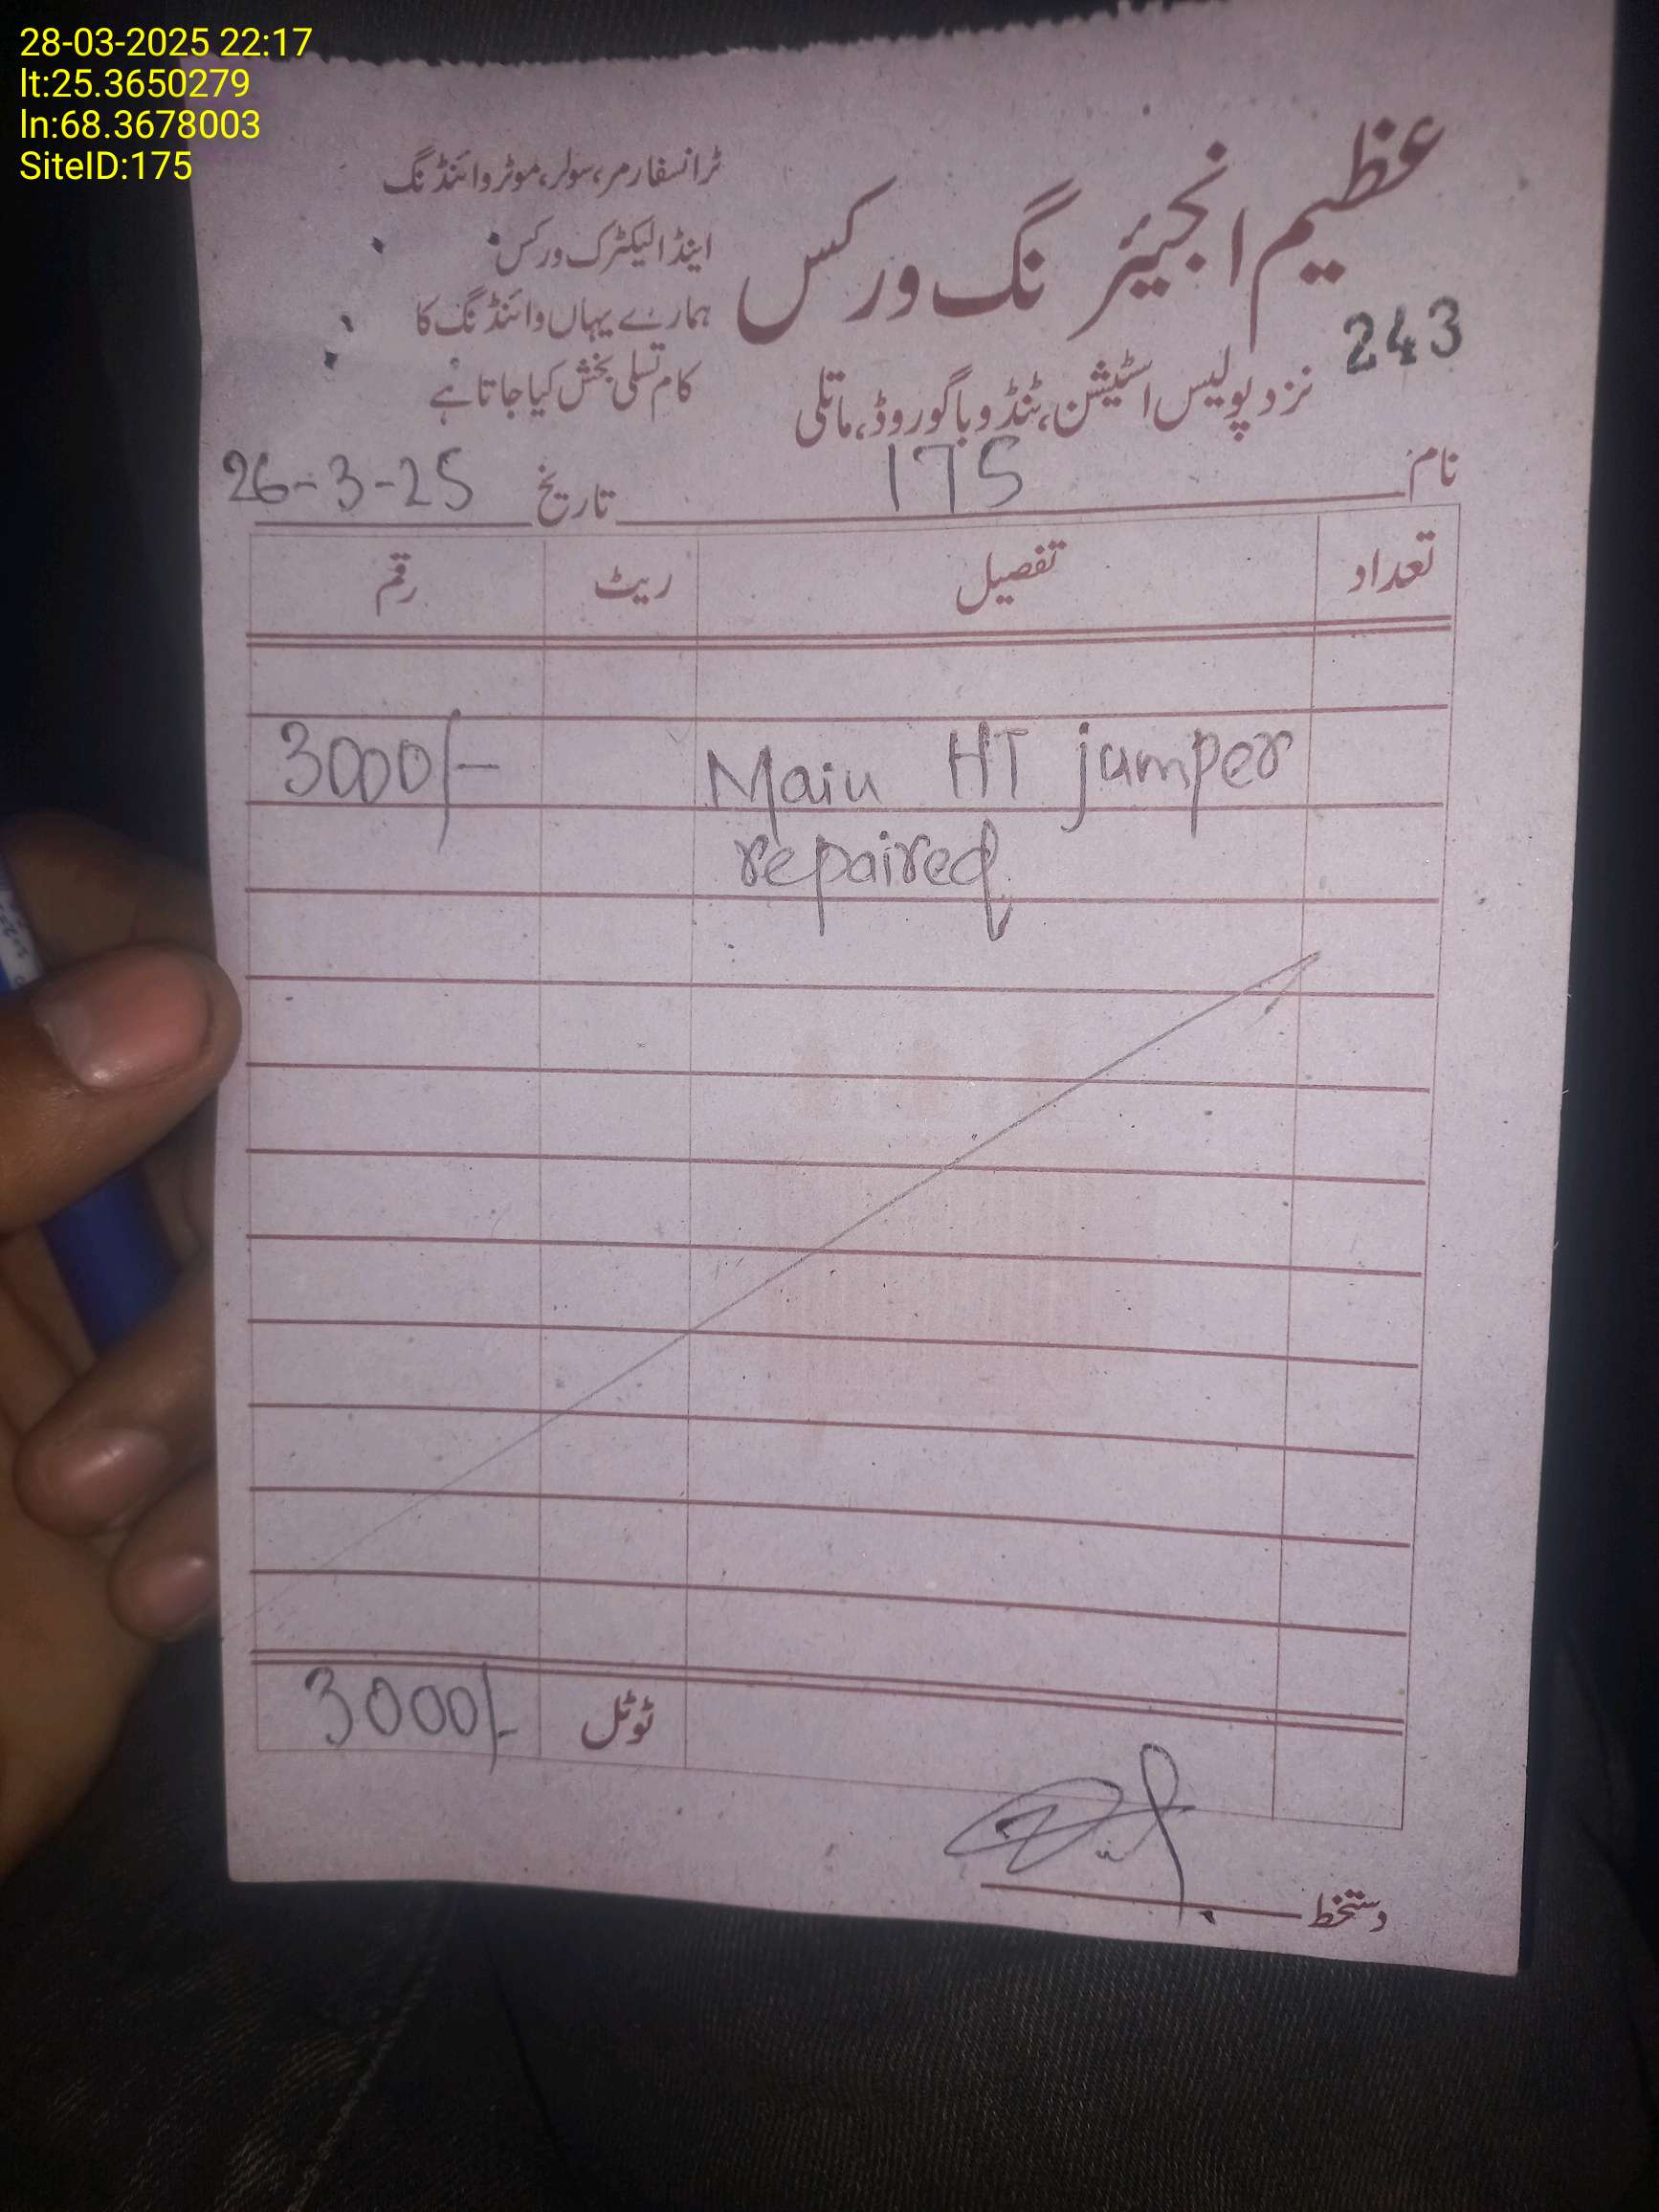 28-03-2025 22:17
lt:25.3650279
ln:68.3678003
SiteID:175
عظیم انجیئرنگ ورکس
ٹرانسفارمر، سولر، موٹر وائنڈنگ
اینڈ الیکٹرک ورکس
ہمارے یہاں وائنڈنگ کا
کام تسلی بخش کیا جاتا ہے
243
نزد پولیس اسٹیشن، ٹنڈو باگو روڈ، ماتلی
نام 175 تاریخ 26-3-25
تعداد تفصیل ریٹ رقم
Main HT jumper 3000/-
repaired
ٹوٹل 3000/-
دستخط